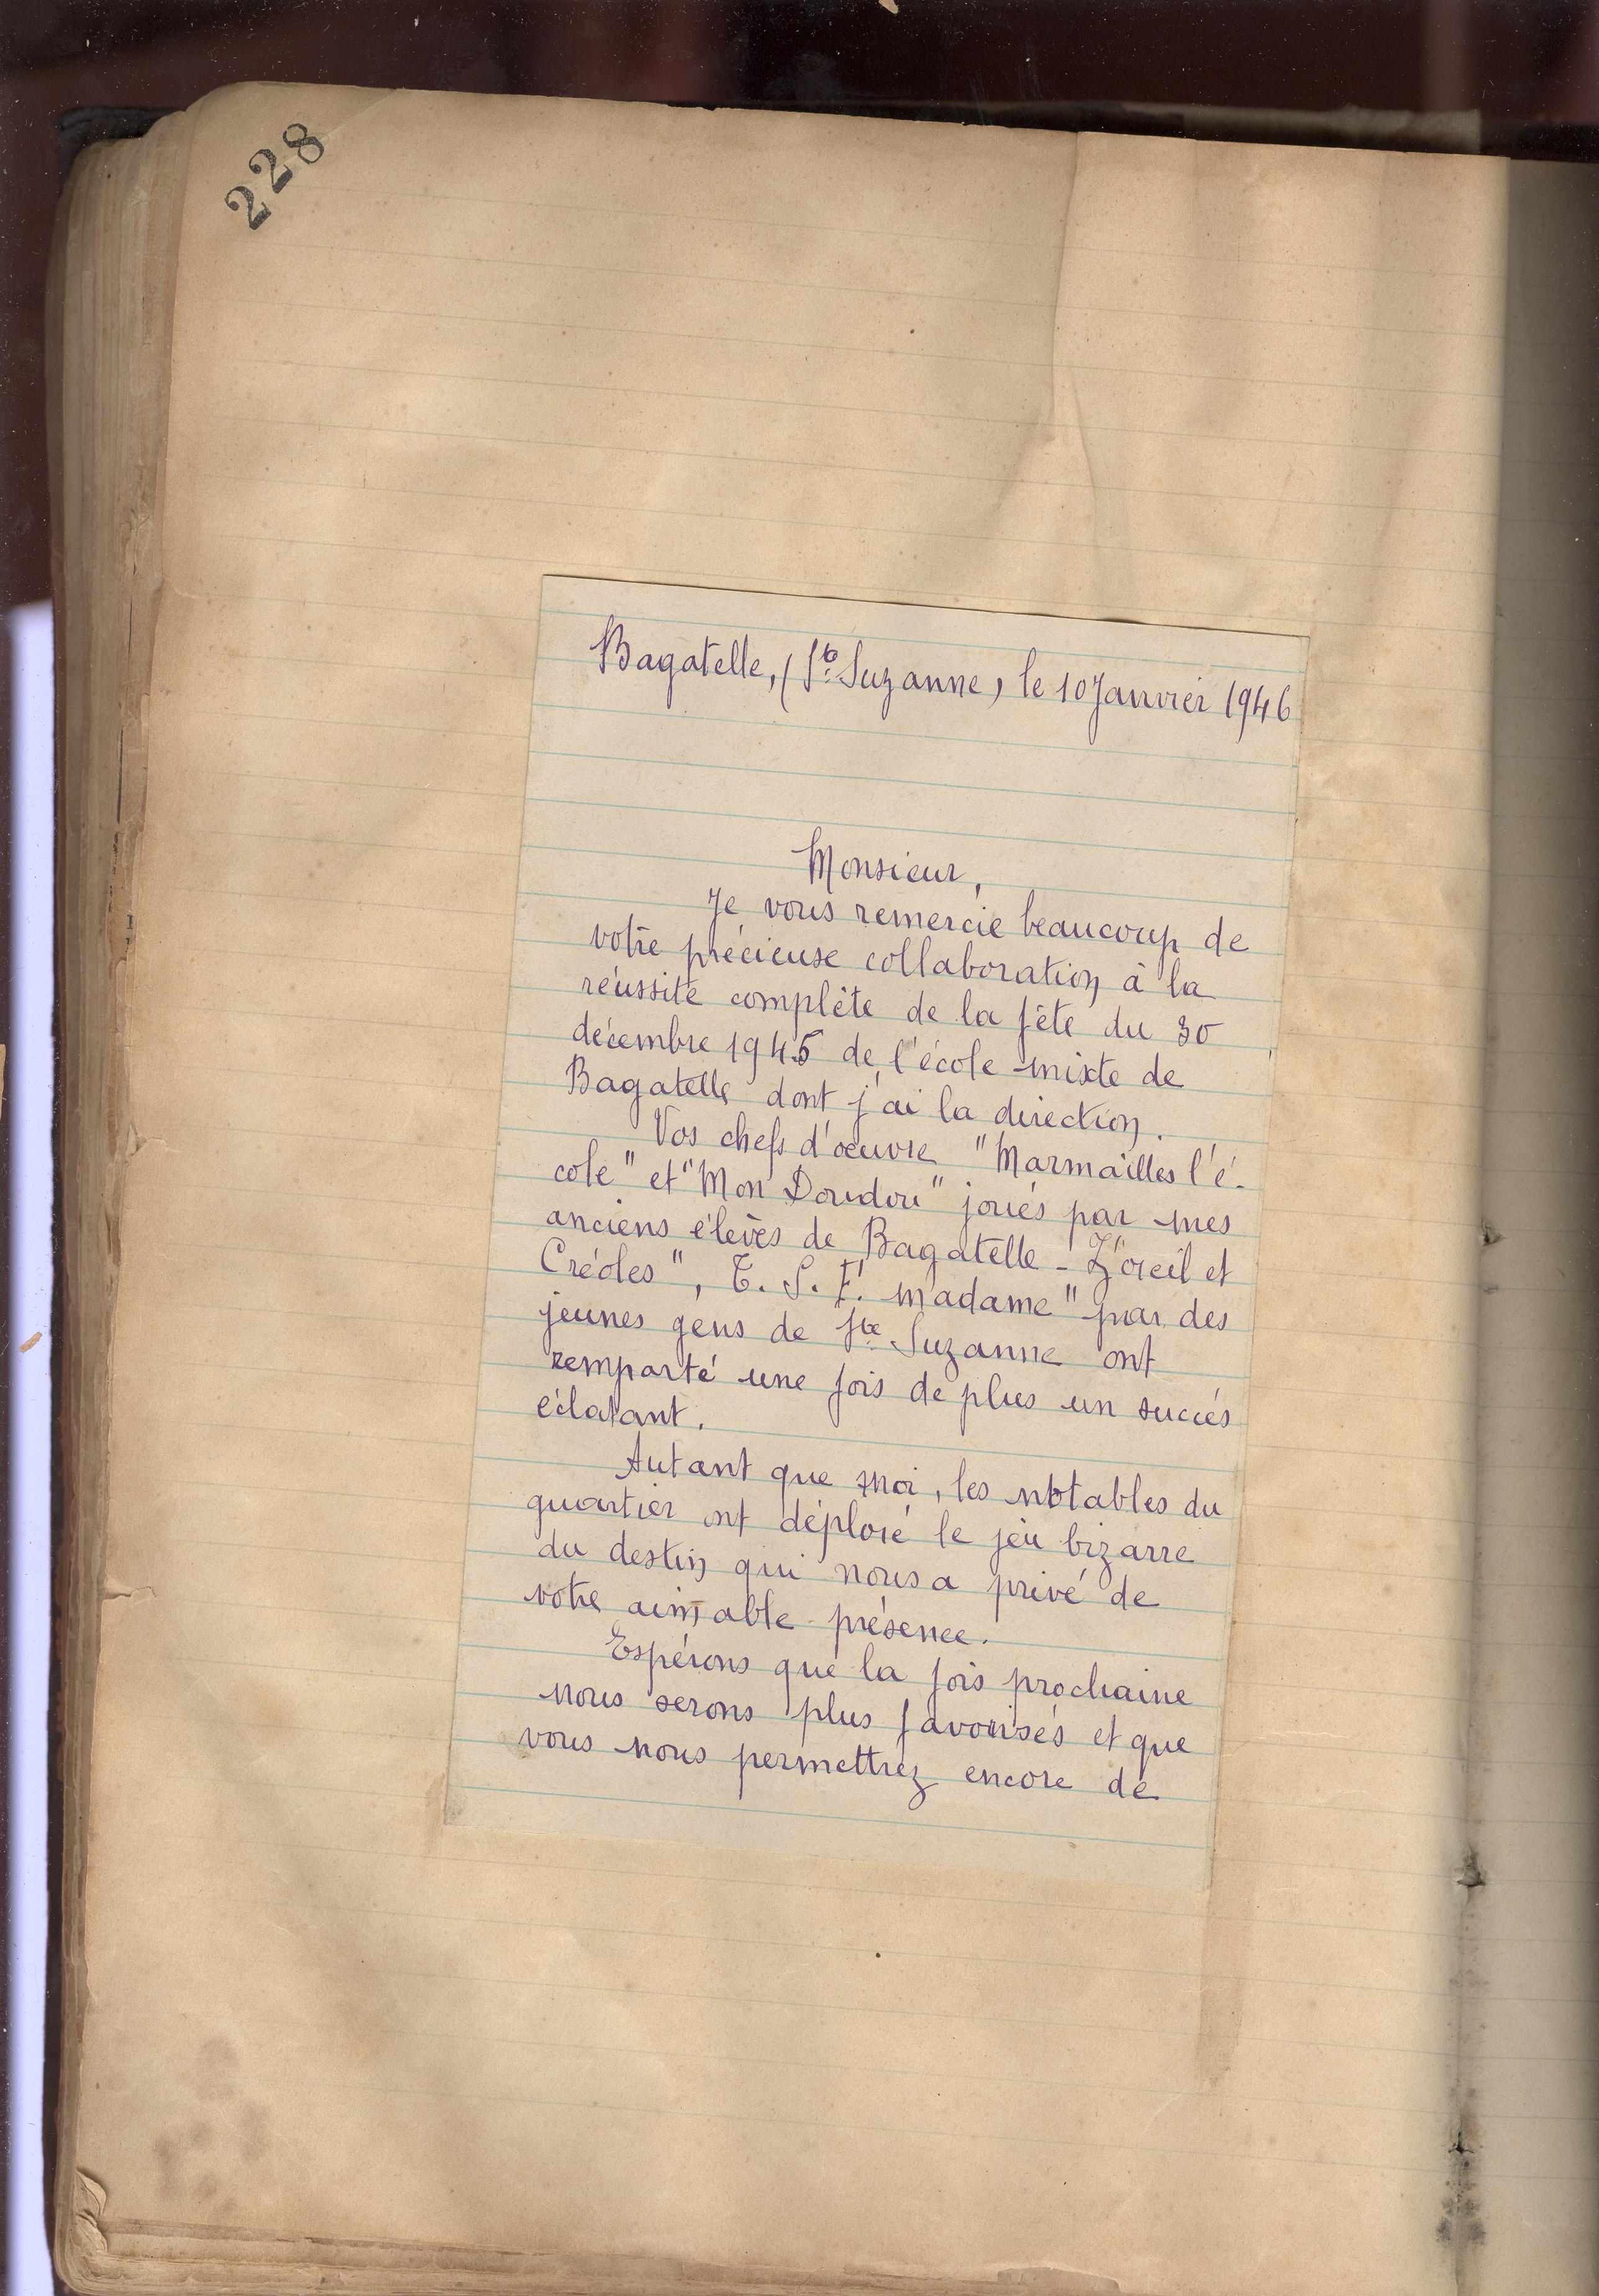 228
Bagatelle, (Ste Suzanne) le 10 Janvier 1946
Monsieur,
Je vous remercie beaucoup de
votre précieuse collaboration à la
réussite complète de la fête du 30
décembre 1945 de l'école mixte de
Bagatelle dont j'ai la direction.
Vos chefs d'oeuvre "Marmailles l'é-
cole" et "Mon Doudou" joués par mes
anciens élèves de Bagatelle - Z'oreil et
Créoles", T. S. F. madame" par des
jeunes gens de Ste Suzanne ont
remporté une fois de plus un succès
éclatant.
Autant que moi, les notables du
quartier ont déploré le jeu bizarre
du destin qui nous a privé de
votre aimable présence.
Espérons que la fois prochaine
nous serons plus favorisés et que
vous nous permettrez encore de